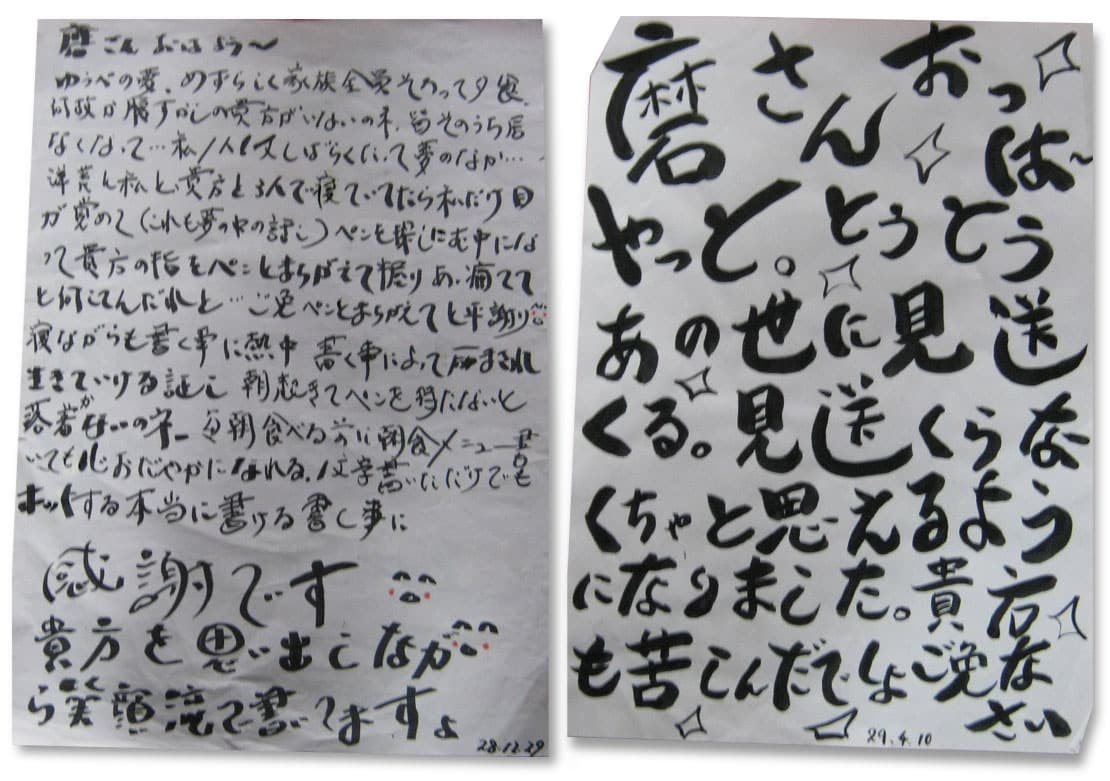 磨さんおはよう〜
ゆうべの めずらしく家族全員そろって夕食
何故か 貴方がいないのネ、皆そのうち居
なくなって…私1人 しばらくたって夢のなか…
私と、貴方と3人で寝ていてたら私だけ目
が覚めて(これも夢の中の話し)ペンを探しにむ中にな
って貴方の指をペンとまちがえて握りあ、痛てて
と何してんだれと…ご免ペンとまちがえてと平謝り
寝ながらも書く事に熱中 書く事によって まされ
生きていける証し 朝起きてペンを持たないと
落着かないのネー 毎朝食べる前に朝食メニュー書
いても心おだやかになれる。1文字書いただけでも
ホッとする本当に書ける書く事に
感謝です
貴方を思い出しなが
ら笑顔流で書いてますよ
28.12.29
磨さんおっは〜
やっと。とうとう
あの世に見送
くる。見送くらな
くちゃと思えるよう
になりました。貴方
も苦しんだでしょご免な
さい
29.4.10